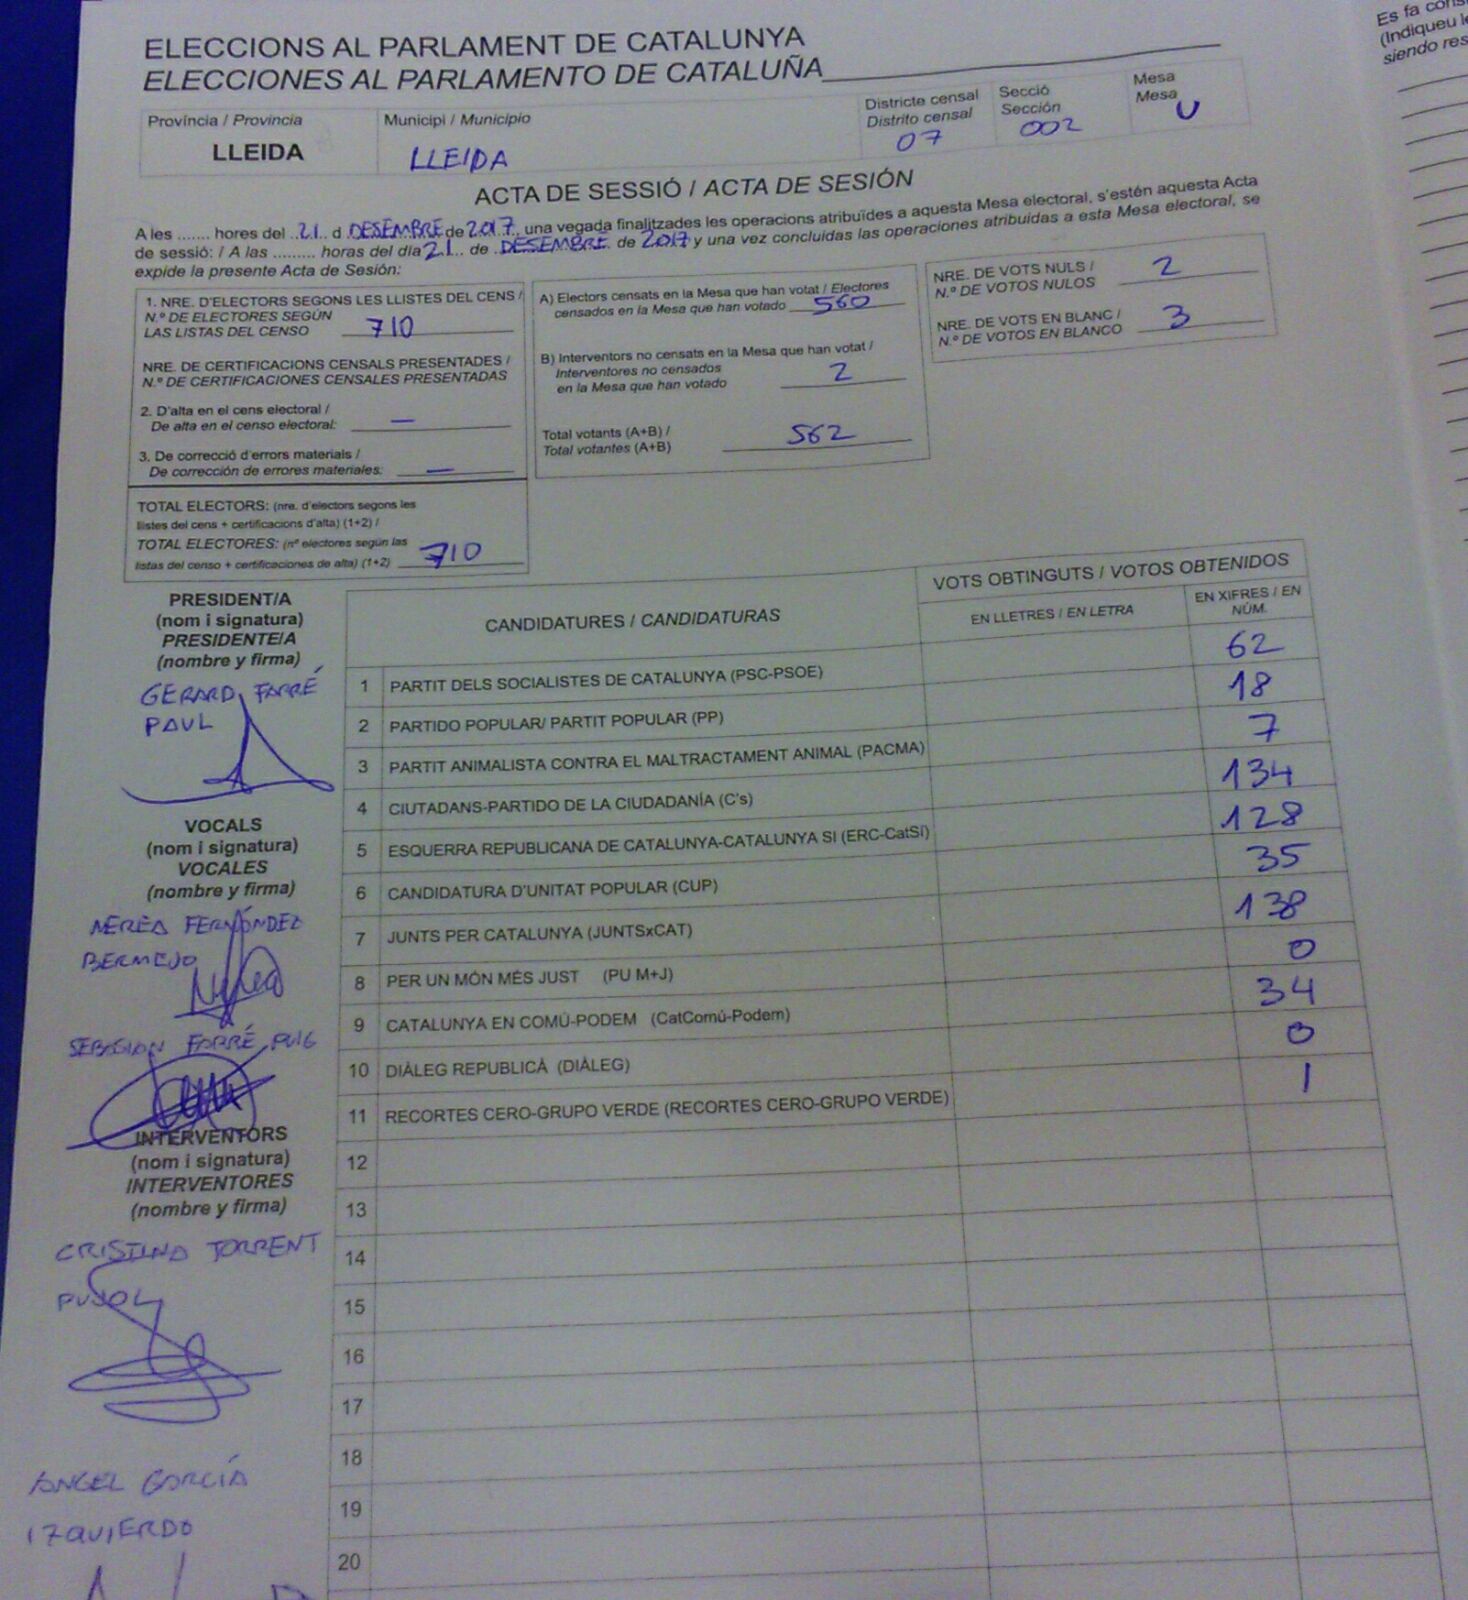 ELECCIONS AL PARLAMENT DE CATALUNYA
ELECCIONES AL PARLAMENTO DE CATALUÑA
Província / Provincia
LLEIDA
Municipi / Municipio
LLEIDA
Districte censal
Distrito censal
07
Secció
Sección
002
Mesa
Mesa
U
ACTA DE SESSIÓ / ACTA DE SESIÓN
A les ....... hores del ..21.. d DESEMBRE de 2017, una vegada finalitzades les operacions atribuïdes a aquesta Mesa electoral, s'estén aquesta Acta
de sessió: / A las ......... horas del día 21.. de ..DESEMBRE. de 2017 y una vez concluidas las operaciones atribuidas a esta Mesa electoral, se
expide la presente Acta de Sesión:
1. NRE. D'ELECTORS SEGONS LES LLISTES DEL CENS /
N.º DE ELECTORES SEGÚN
LAS LISTAS DEL CENSO 710
NRE. DE CERTIFICACIONS CENSALS PRESENTADES /
N.º DE CERTIFICACIONES CENSALES PRESENTADAS
2. D'alta en el cens electoral /
De alta en el censo electoral: —
3. De correcció d'errors materials /
De corrección de errores materiales: —
TOTAL ELECTORS: (nre. d'electors segons les
llistes del cens + certificacions d'alta) (1+2) /
TOTAL ELECTORES: (nº electores según las
listas del censo + certificaciones de alta) (1+2) 710
A) Electors censats en la Mesa que han votat / Electores
censados en la Mesa que han votado 560
B) Interventors no censats en la Mesa que han votat /
Interventores no censados
en la Mesa que han votado 2
Total votants (A+B) /
Total votantes (A+B) 562
NRE. DE VOTS NULS /
N.º DE VOTOS NULOS 2
NRE. DE VOTS EN BLANC /
N.º DE VOTOS EN BLANCO 3
PRESIDENT/A
(nom i signatura)
PRESIDENTE/A
(nombre y firma)
GERARD FARRÉ
PAUL
VOCALS
(nom i signatura)
VOCALES
(nombre y firma)
NEREA FERNÓNDEZ
BERMEJO
SEBASTIAN FARRÉ PUIG
INTERVENTORS
(nom i signatura)
INTERVENTORES
(nombre y firma)
CRISTINA TORRENT
PUJOL
ANGEL GARCÍA
IZQUIERDO
CANDIDATURES / CANDIDATURAS
VOTS OBTINGUTS / VOTOS OBTENIDOS
EN LLETRES / EN LETRA
EN XIFRES / EN
NÚM.
1 PARTIT DELS SOCIALISTES DE CATALUNYA (PSC-PSOE) 62
2 PARTIDO POPULAR/ PARTIT POPULAR (PP) 18
3 PARTIT ANIMALISTA CONTRA EL MALTRACTAMENT ANIMAL (PACMA) 7
4 CIUTADANS-PARTIDO DE LA CIUDADANÍA (C's) 134
5 ESQUERRA REPUBLICANA DE CATALUNYA-CATALUNYA SI (ERC-CatSí) 128
6 CANDIDATURA D'UNITAT POPULAR (CUP) 35
7 JUNTS PER CATALUNYA (JUNTSxCAT) 138
8 PER UN MÓN MÉS JUST (PU M+J) 0
9 CATALUNYA EN COMÚ-PODEM (CatComú-Podem) 34
10 DIÀLEG REPUBLICÀ (DIÀLEG) 0
11 RECORTES CERO-GRUPO VERDE (RECORTES CERO-GRUPO VERDE) 1
12
13
14
15
16
17
18
19
20
Es fa
(Indiqueu
siendo